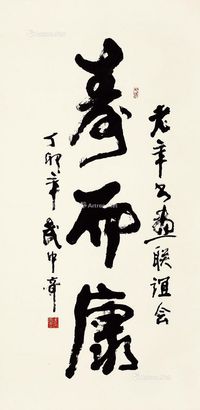 寿而康
老年书画联谊会
丁卯年 武中奇